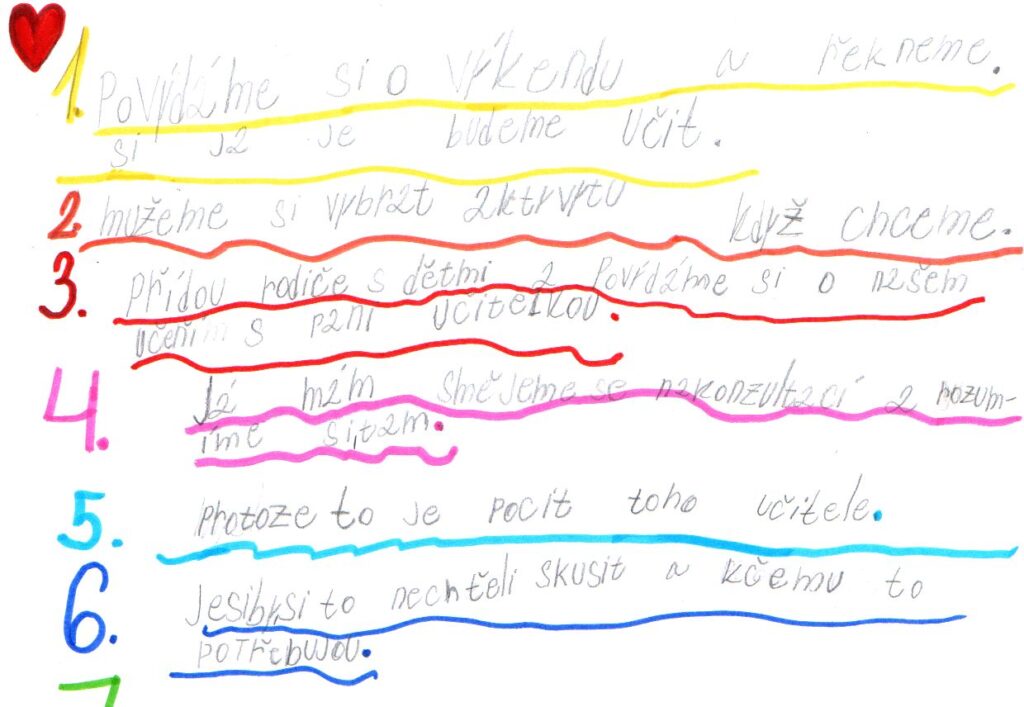 1. Povýdáme si o výkendu a řekneme.
si ja je budeme učit.
2. mužeme si vybrat zktvrtu když chceme.
3. Přídou rodiče s dětmi a Povídáme si o našem
učením s paní učitelkou.
4. Já mám smějeme se nakonzultaci a rozum-
íme si,tam.
5. protoze to je pocit toho učitele.
6. Jesibysi to nechtěli skusit a kčemu to
potřebujou.
7